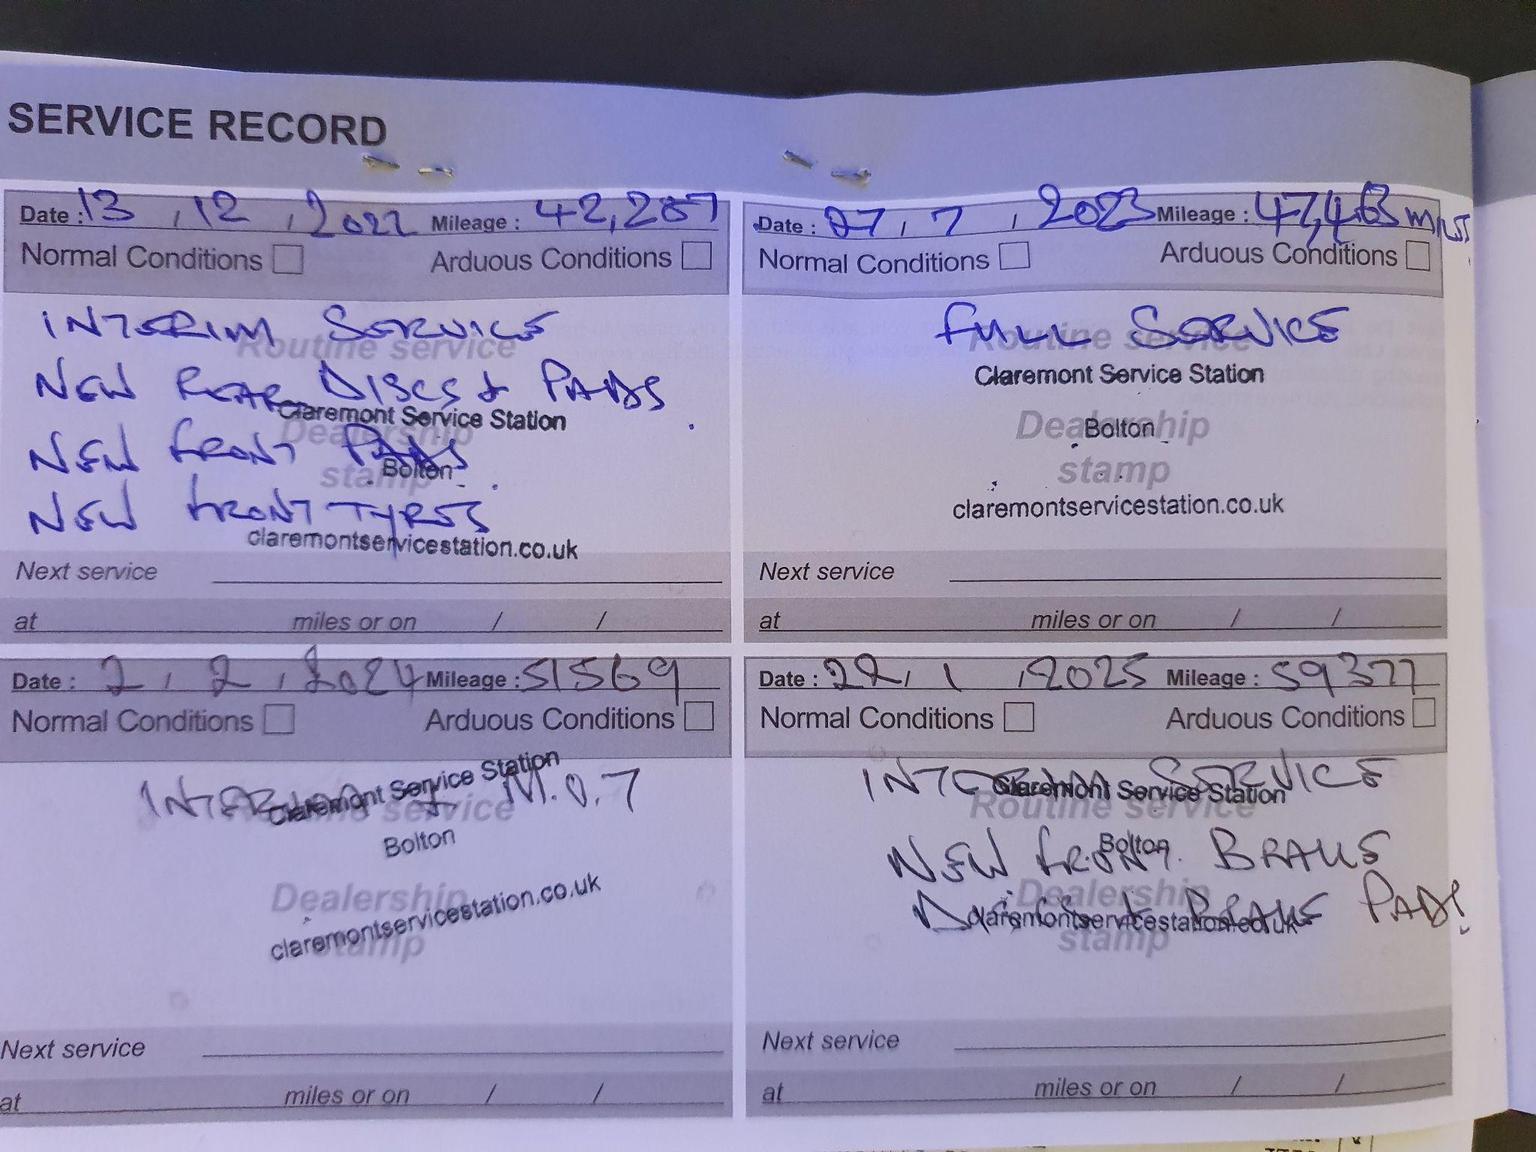 SERVICE RECORD
Date : 13 , 12 , 2022 Mileage : 42,287
Normal Conditions Arduous Conditions
INTERIM SERVICE
Routine service
NEW REAR DISCS & PADS
Claremont Service Station
Dealership
NEW FRONT PADS
stamp
Bolton
NEW FRONT TYRES
claremontservicestation.co.uk
Next service
at miles or on / /
Date : 27 , 7 , 2023 Mileage : 47,463
Normal Conditions Arduous Conditions
FULL SERVICE
Routine service
Claremont Service Station
Dealership
Bolton
stamp
claremontservicestation.co.uk
Next service
at miles or on / /
Date : 2 , 2 , 2024 Mileage : 51569
Normal Conditions Arduous Conditions
Claremont Service Station
INTERIM & M.O.T
Routine service
Bolton
Dealership
claremontservicestation.co.uk
stamp
Next service
at miles or on / /
Date : 22 , 1 , 2025 Mileage : 59377
Normal Conditions Arduous Conditions
INTERIM SERVICE
Claremont Service Station
Routine service
Bolton
NEW FRONT BRAKE
Dealership
DISCS & BRAKE PADS
claremontservicestation.co.uk
stamp
Next service
at miles or on / /